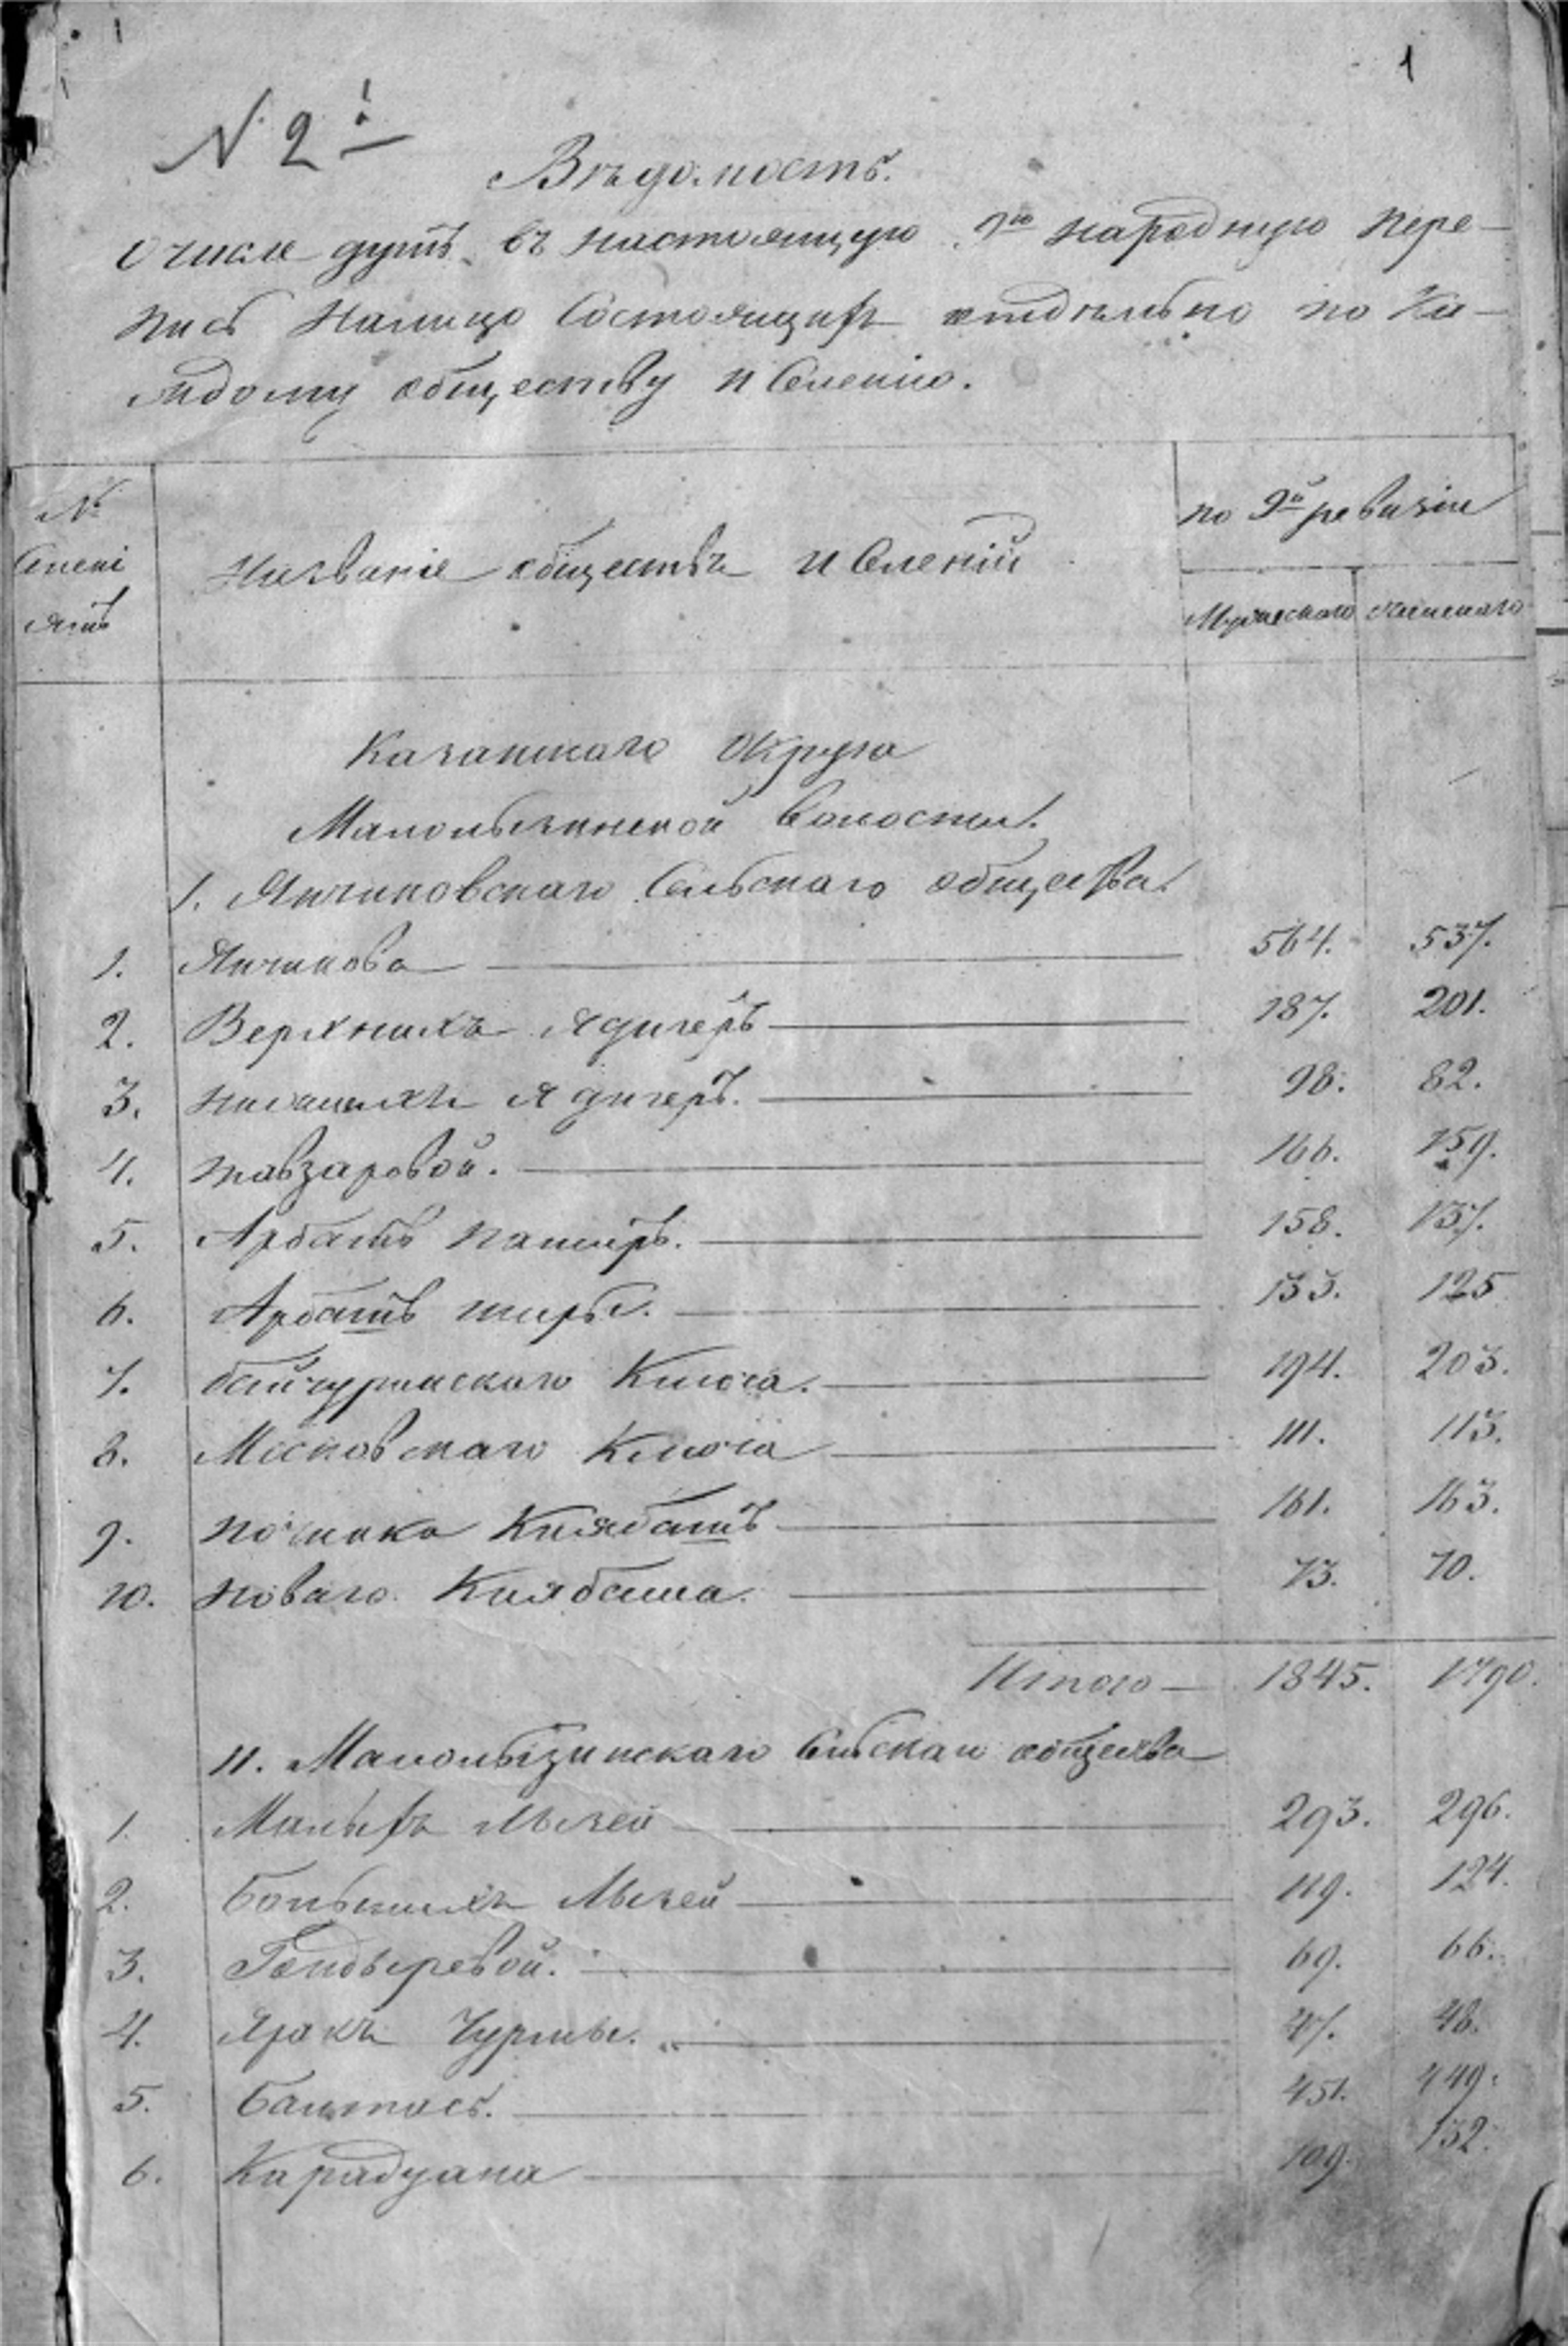 1
N 2й
Вѣдомость.
О числѣ душъ въ настоящую 9ю народную пере-
пись налицо состоящихъ отдѣльно по ка-
ждому обществу и селенію.
№
селені
ямъ
Названіе обществъ и селеній
по 9й ревизіи
Мужескаго женскаго
Казанскаго Округа
Малолызинской волости.
1. Янчиковскаго сельскаго общества.
1. Янчикова 564. 537.
2. Верхнихъ Ядигеръ 187. 201.
3. Нижнихъ Ядигеръ. 98. 82.
4. Тавзаровой. 166. 159.
5. Арбашъ 158. 137.
6. Арбашъ 133. 125
7. Ключа. 194. 203.
8. Ключа 111. 113.
9. починка Киябашъ 161. 163.
10. Новаго Киябаша. 73. 70.
Итого 1845. 1790.
11. Малолызинскаго сельскаго общества
1. Малыхъ Лызей 293. 296.
2. Большихъ Лызей 119. 124.
3. 69. 66.
4. Яракъ Чурмы. 47. 48.
5. 451. 449.
6. Карадуана 109. 132.